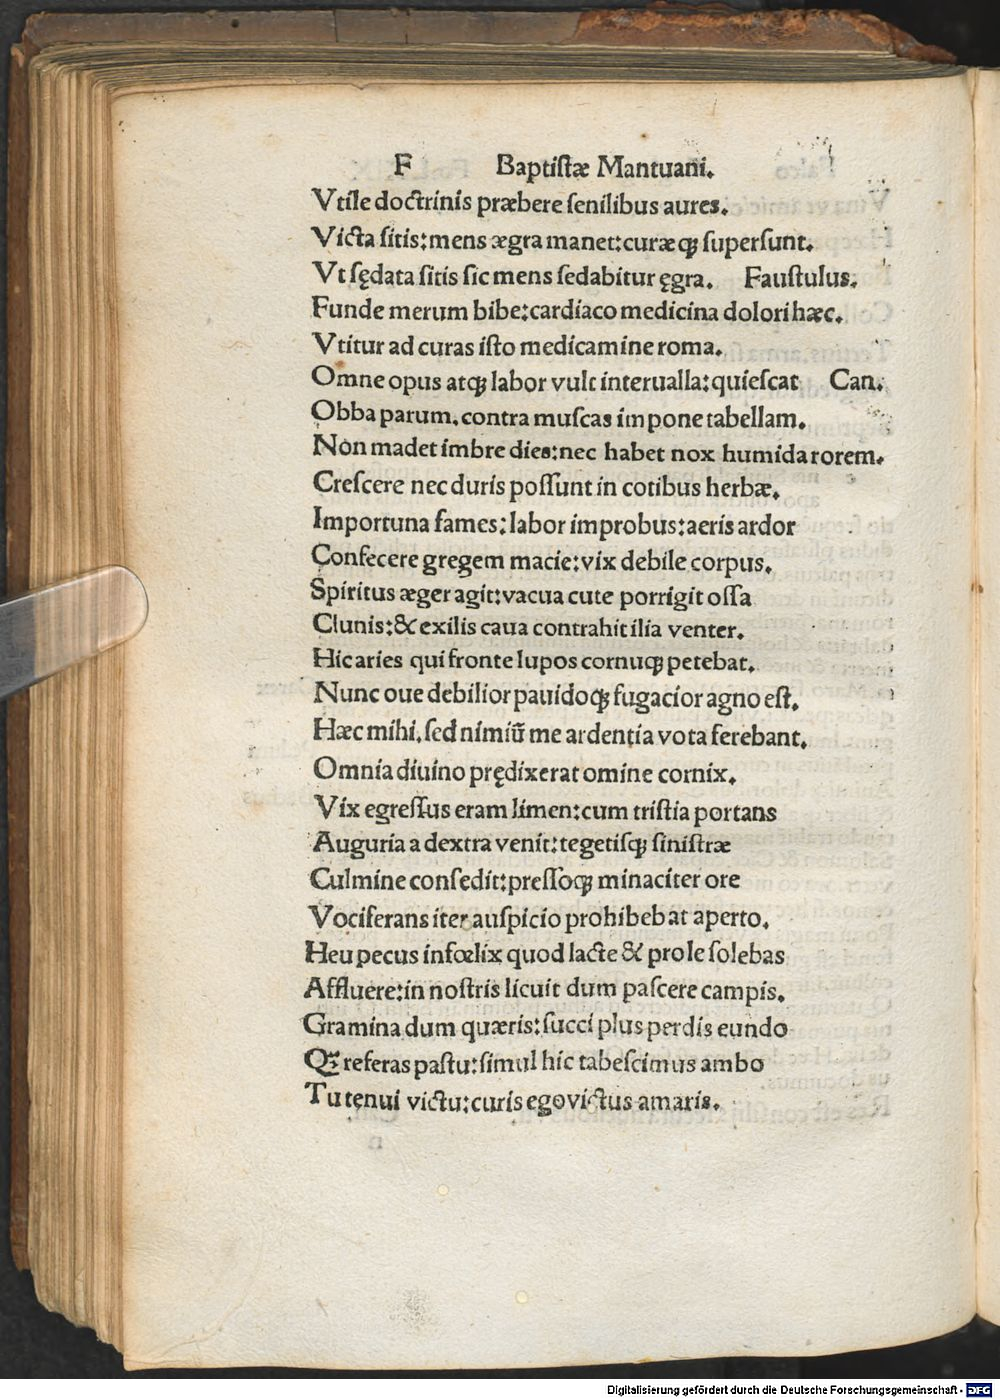 F Baptistæ Mantuani.
Vtile doctrinis præbere ſenilibus aures.
Victa ſitis: mens ægra manet: curæ qꝫ ſuperſunt.
Vt ſędata ſitis ſic mens ſedabitur ęgra. Fauſtulus.
Funde merum bibe: cardiaco medicina dolori hæc.
Vtitur ad curas iſto medicamine roma.
Omne opus atqꝫ labor vult interualla: quieſcat Can.
Obba parum. contra muſcas impone tabellam.
Non madet imbre dies: nec habet nox humida rorem.
Creſcere nec duris poſſunt in cotibus herbæ.
Importuna fames: labor improbus: aeris ardor
Confecere gregem macie: vix debile corpus.
Spiritus æger agit: vacua cute porrigit oſſa
Clunis: & exilis caua contrahit ilia venter.
Hic aries qui fronte lupos cornuqꝫ petebat.
Nunc oue debilior pauidoqꝫ fugacior agno eſt.
Hæc mihi. ſed nimiū me ardentia vota ferebant.
Omnia diuino prędixerat omine cornix.
Vix egreſſus eram limen: cum triſtia portans
Auguria a dextra venit: tegetiſqꝫ ſiniſtræ
Culmine conſedit: preſſoqꝫ minaciter ore
Vociferans iter auſpicio prohibebat aperto.
Heu pecus infœlix quod lacte & prole ſolebas
Affluere: in noſtris licuit dum paſcere campis.
Gramina dum quæris: ſucci plus perdis eundo
Qꝫ referas paſtu: ſimul hic tabeſcimus ambo
Tu tenui victu: curis ego victus amaris.
Digitalisierung gefördert durch die Deutsche Forschungsgemeinschaft - DFG